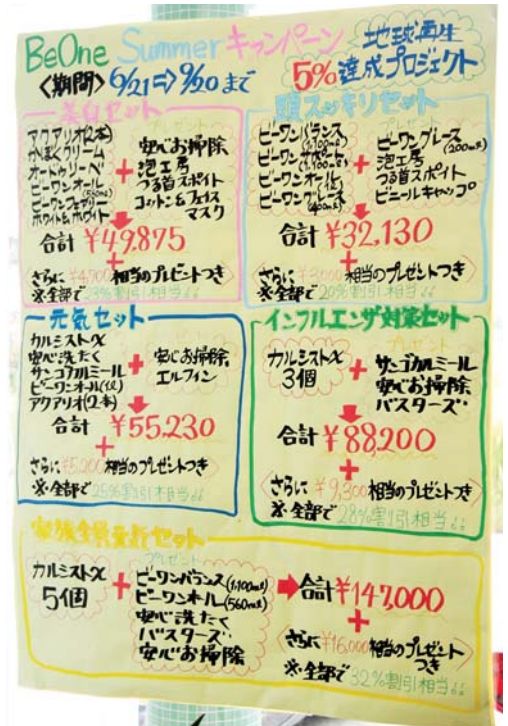 BeOne Summer キャンペーン
<期間> 6/21⇒9/20まで
地球再生
5%達成プロジェクト
美白セット
アクアリオ(2本)
かぼくクリーム
オードゥリーベ
ビーワンオール
(560mℓ)
ビーワンフェザリー
ホワイト&ホワイト
+
プレゼント
安心お掃除
泡工房
つる首スポイト
コットン&フェイス
マスク
合計 ¥49,875
+
さらに ¥4,900相当のプレゼントつき
※全部で23%割引相当!!
頭スッキリセット
ビーワンバランス
(1,100mℓ)
ビーワンサポート
(1,100mℓ)
ビーワンオール
(560mℓ)
ビーワングレイス
(400mℓ)
+
プレゼント
ビーワングレース
(200mℓ)
泡工房
つる首スポイト
ビニールキャップ
合計 ¥32,130
+
さらに ¥3,000相当のプレゼントつき
※全部で20%割引相当!!
元気セット
カルミストχ
安心洗たく
サンゴカルミール
ビーワンオール(1ℓ)
アクアリオ(2本)
+
プレゼント
安心お掃除
エルフィン
合計 ¥55,230
+
さらに ¥5,200相当のプレゼントつき
※全部で25%割引相当!!
インフルエンザ対策セット
カルミストχ
3個
+
プレゼント
サンゴカルミール
安心お掃除
バスターズ
合計 ¥88,200
+
さらに ¥9,300相当のプレゼントつき
※全部で28%割引相当!!
家族全員
セット
カルミストχ
5個
+
プレゼント
ビーワンバランス(1,100mℓ)
ビーワンオール(560mℓ)
安心洗たく
バスターズ
安心お掃除
合計 ¥147,000
+
さらに ¥16,000相当のプレゼント
つき
※全部で32%割引相当!!